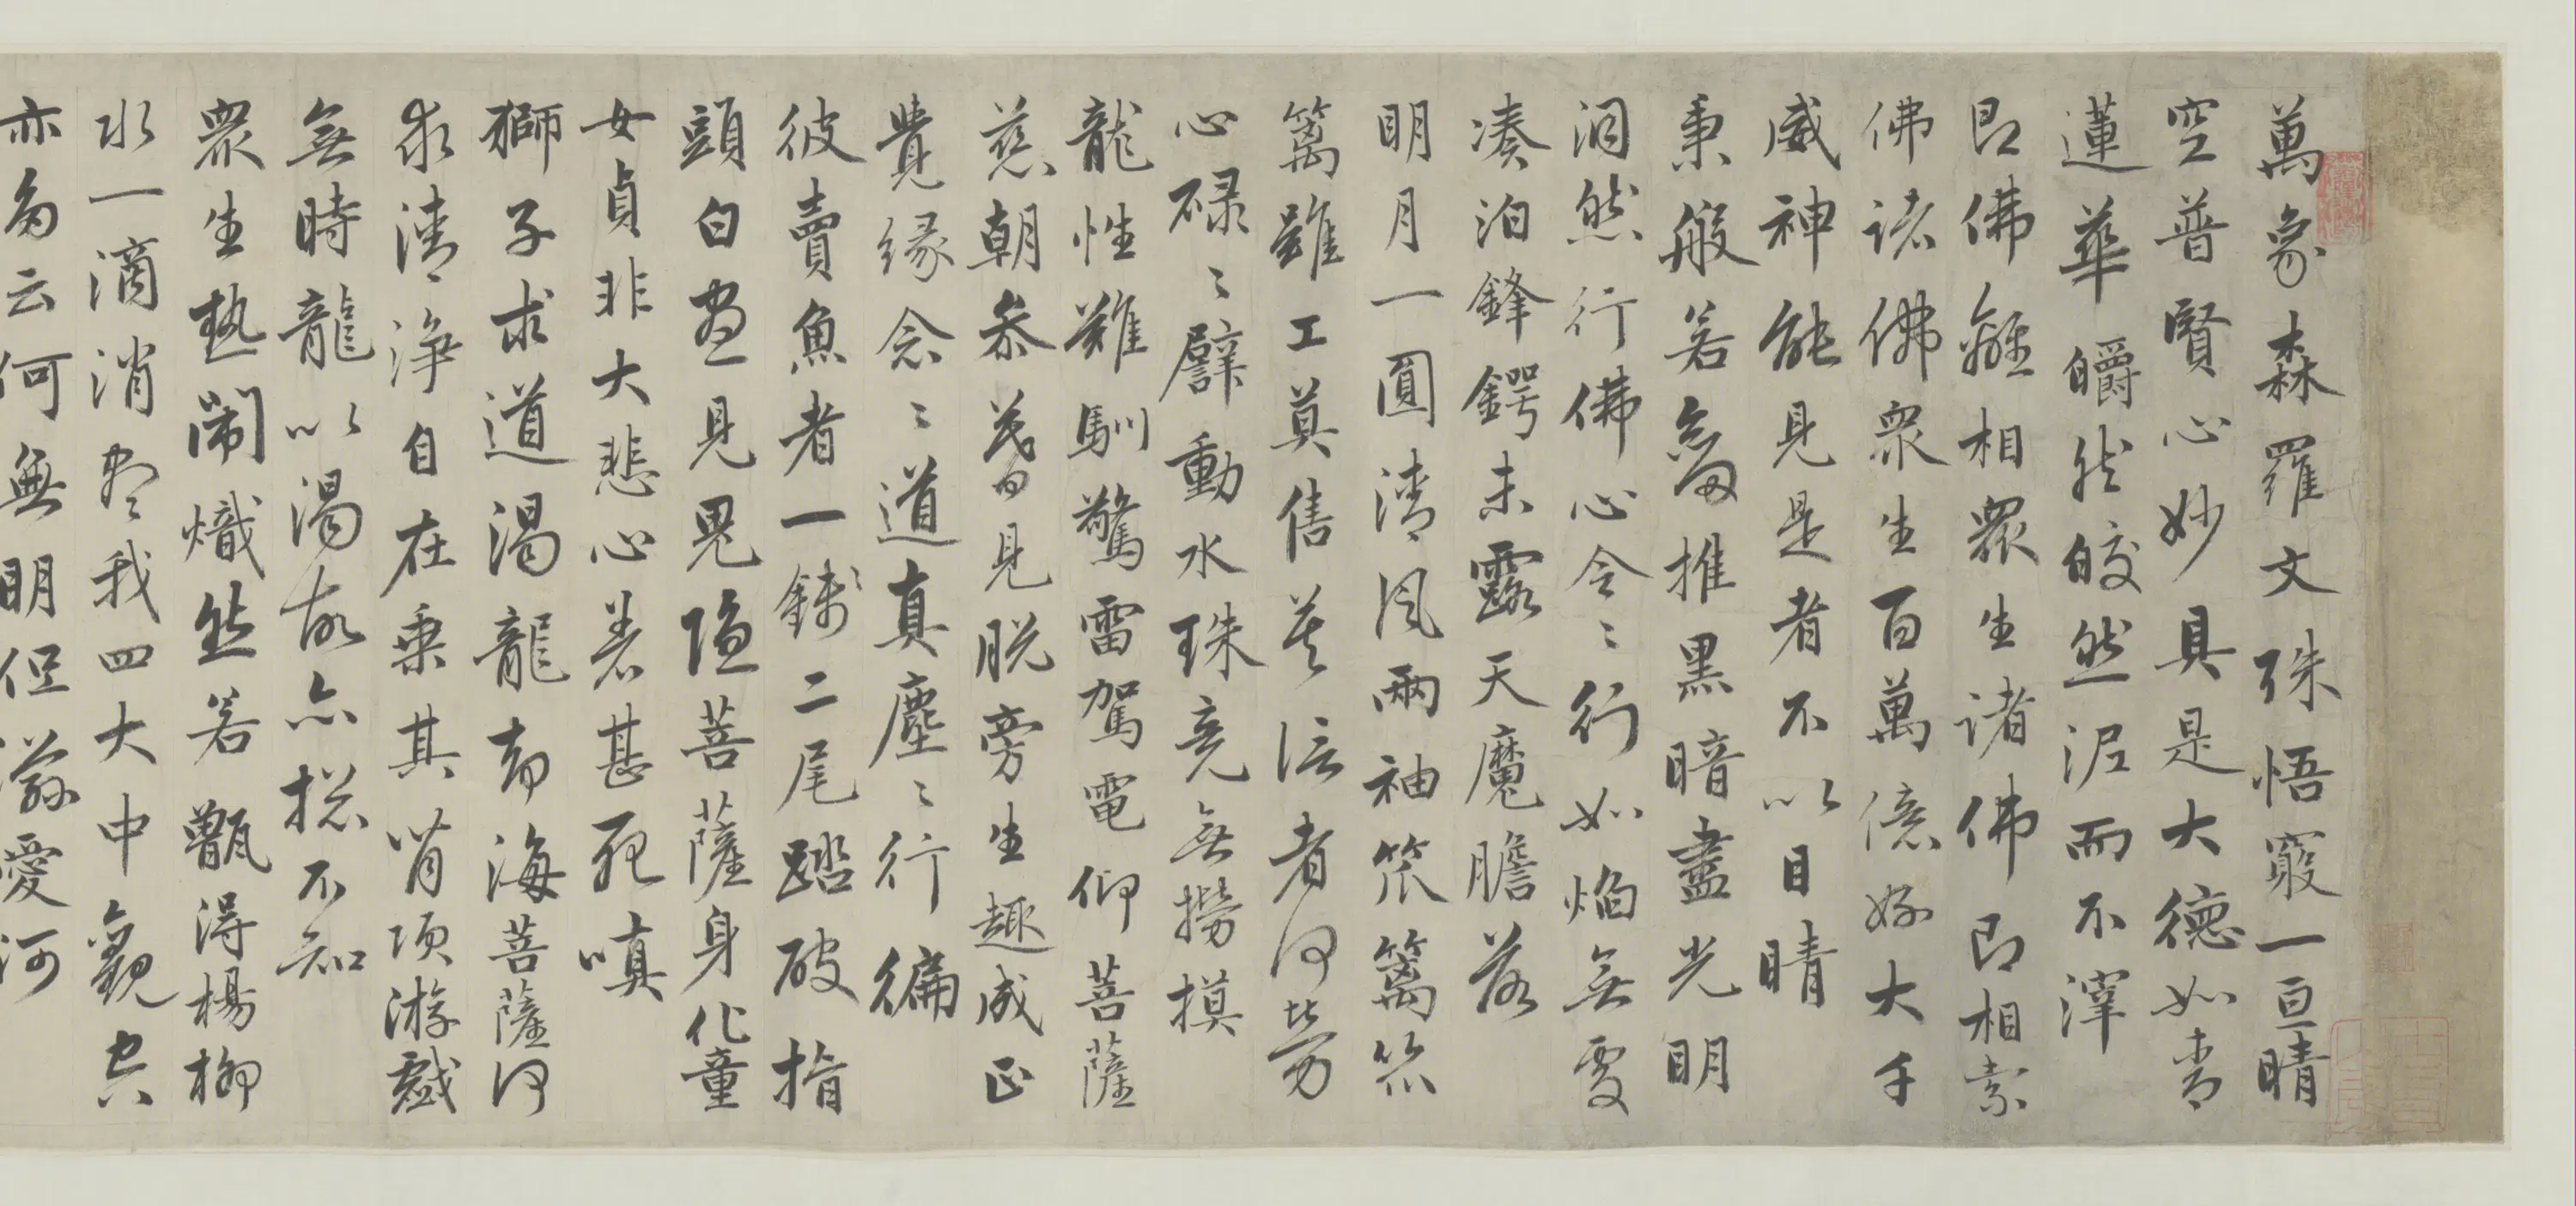 萬象森羅文殊悟窺一亘晴
空普賢心妙具是大德如青
蓮華皭然皎然泥而不滓
即佛離相眾生諸佛即相索
佛諸佛眾生百萬億姟大千
威神能見是者不以目睛
秉般若劔摧黑暗盡光明
洞然行佛心令〻行如焰無處
湊泊鋒鍔未露天魔膽落
明月一圓清風兩袖笊篱笊
篱雖工莫售芙渠者何勞
心碌〻擘動水珠竟無撈摸
龍性難馴驚雷駕電仰菩薩
慈朝參暮見脫旁生趣成正
覺緣念〻道真塵〻行徧
彼賣魚者一錢二尾踏破指
頭白晝見鬼隱菩薩身化童
女貞非大悲心差甚死嗔
獅子求道渴龍奔海菩薩何
求清淨自在乘其背項游戲
無時龍以渴故亦揔不知
眾生熱鬧熾然若甑得楊柳
水一滴消盡我四大中觀空
亦為云何無明但溺愛河